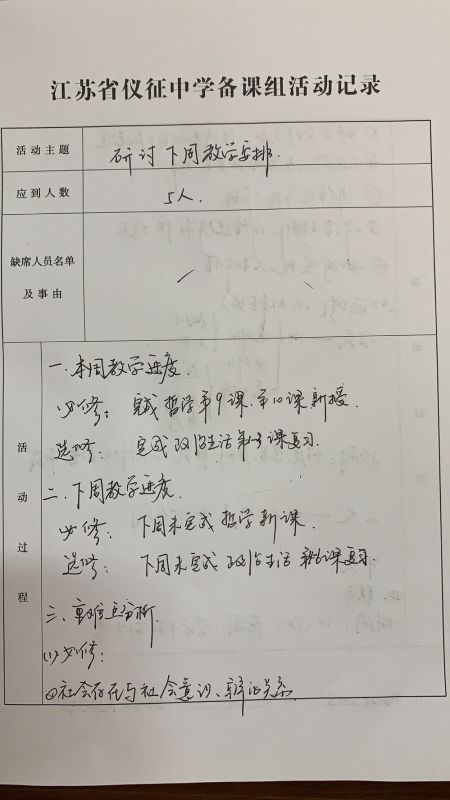 江苏省仪征中学备课组活动记录
活动主题 研讨下周教学安排.
应到人数 5人.
缺席人员名单
及事由
活动过程
一.本周教学进度.
必修: 完成哲学第9课.第10课新授.
选修: 完成政治生活第 课复习.
二.下周教学进度.
必修: 下周末完成哲学新课.
选修: 下周末完成政治生活 课复习.
三、重难点分析
(1)必修:
①社会存在与社会意识、辩证关系